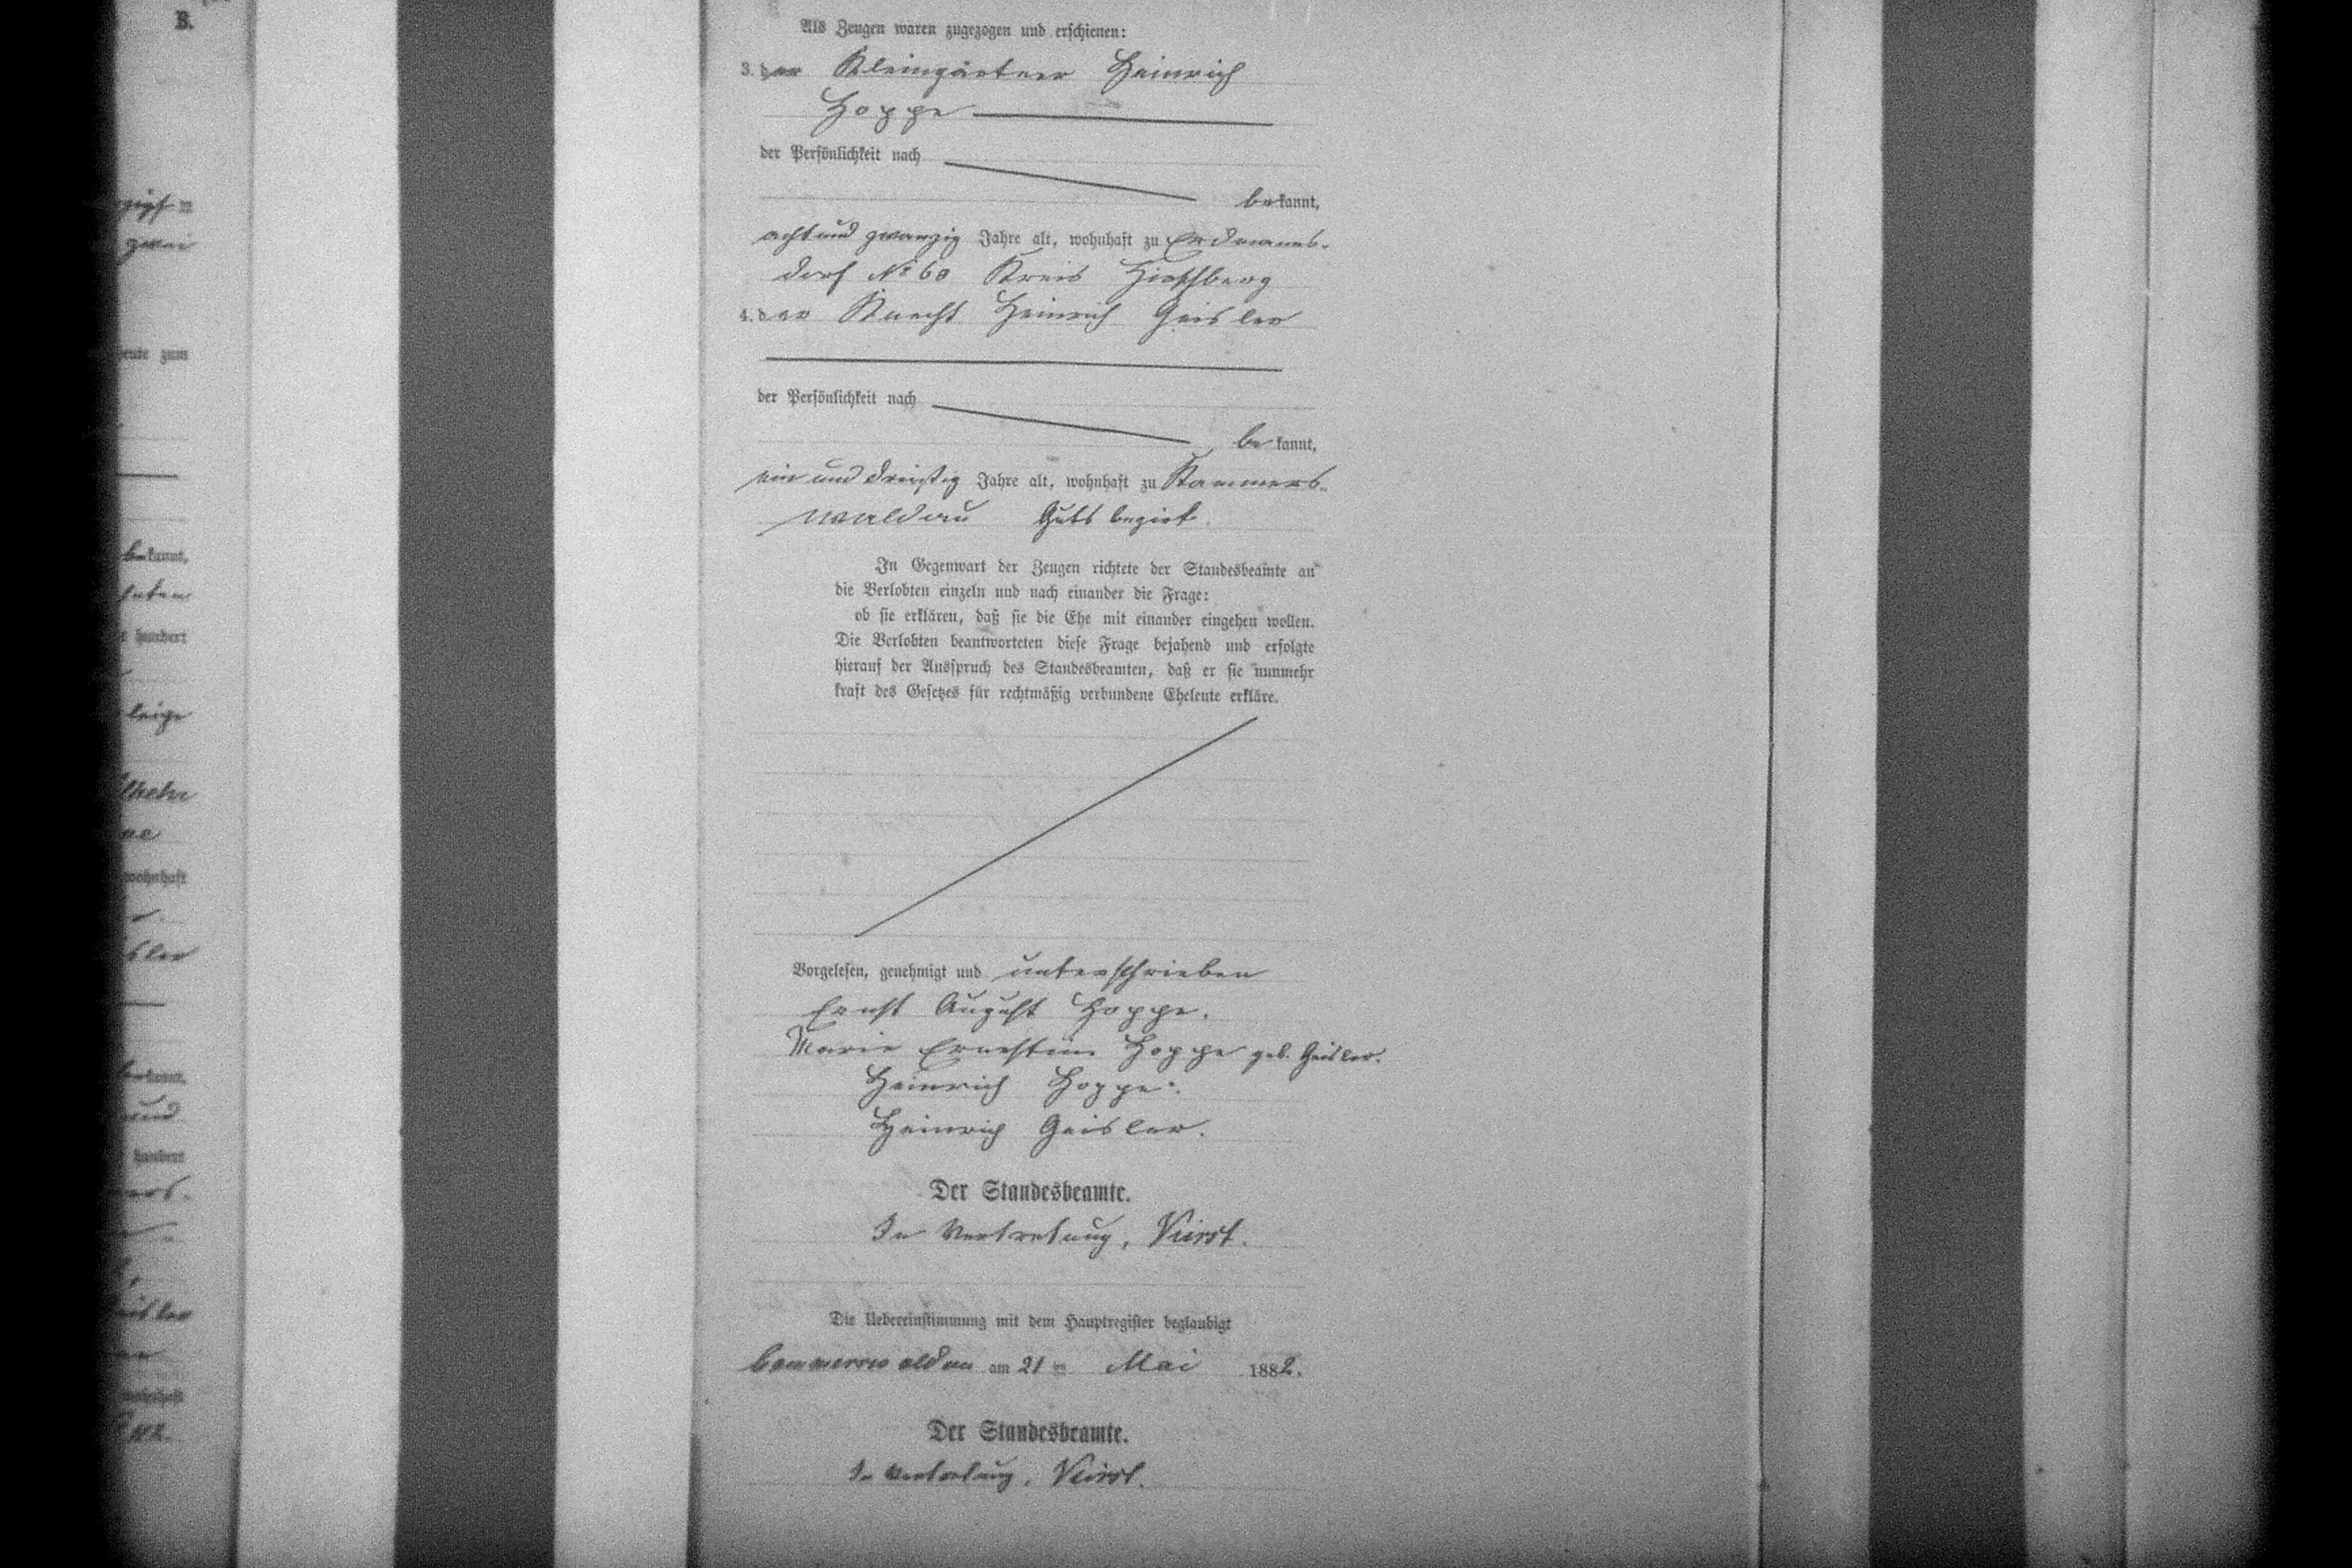 B.
zwei
heute zum
bekannt,
hundert
wohnhaft
bekannt,
und
hundert
wohnhaft
Als Zeugen waren zugezogen und erschienen:
3. der Kleingärtner Heinrich
Hoppe
der Persönlichkeit nach
bekannt,
achtundzwanzig Jahre alt, wohnhaft zu Erdmanns-
dorf No 60 Kreis Hirschberg
4. der Knecht Heinrich Geisler
der Persönlichkeit nach
bekannt,
ein und dreißig Jahre alt, wohnhaft zu Kammers-
waldau Gutsbezirk.
In Gegenwart der Zeugen richtete der Standesbeamte an
die Verlobten einzeln und nach einander die Frage:
ob sie erklären, daß sie die Ehe mit einander eingehen wollen.
Die Verlobten beantworteten diese Frage bejahend und erfolgte
hierauf der Ausspruch des Standesbeamten, daß er sie nunmehr
kraft des Gesetzes für rechtmäßig verbundene Eheleute erkläre.
Vorgelesen, genehmigt und unterschrieben
Ernst August Hoppe.
Marie Ernestine Hoppe geb. Geisler.
Heinrich Hoppe.
Heinrich Geisler.
Der Standesbeamte.
In Vertretung,
Die Uebereinstimmung mit dem Hauptregister beglaubigt
Cammerswaldau am 21 ten Mai 1882.
Der Standesbeamte.
In Vertretung,